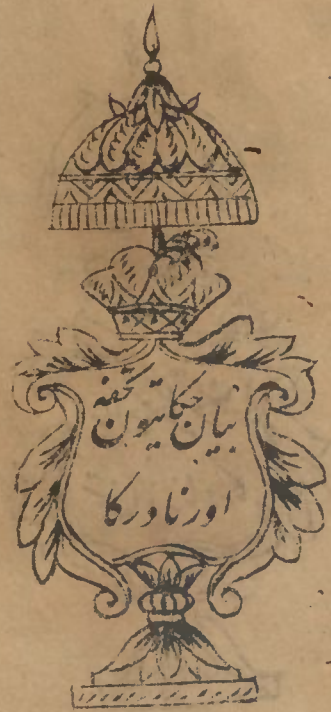 بیان حکایتون تحفہ
اور نادر کا